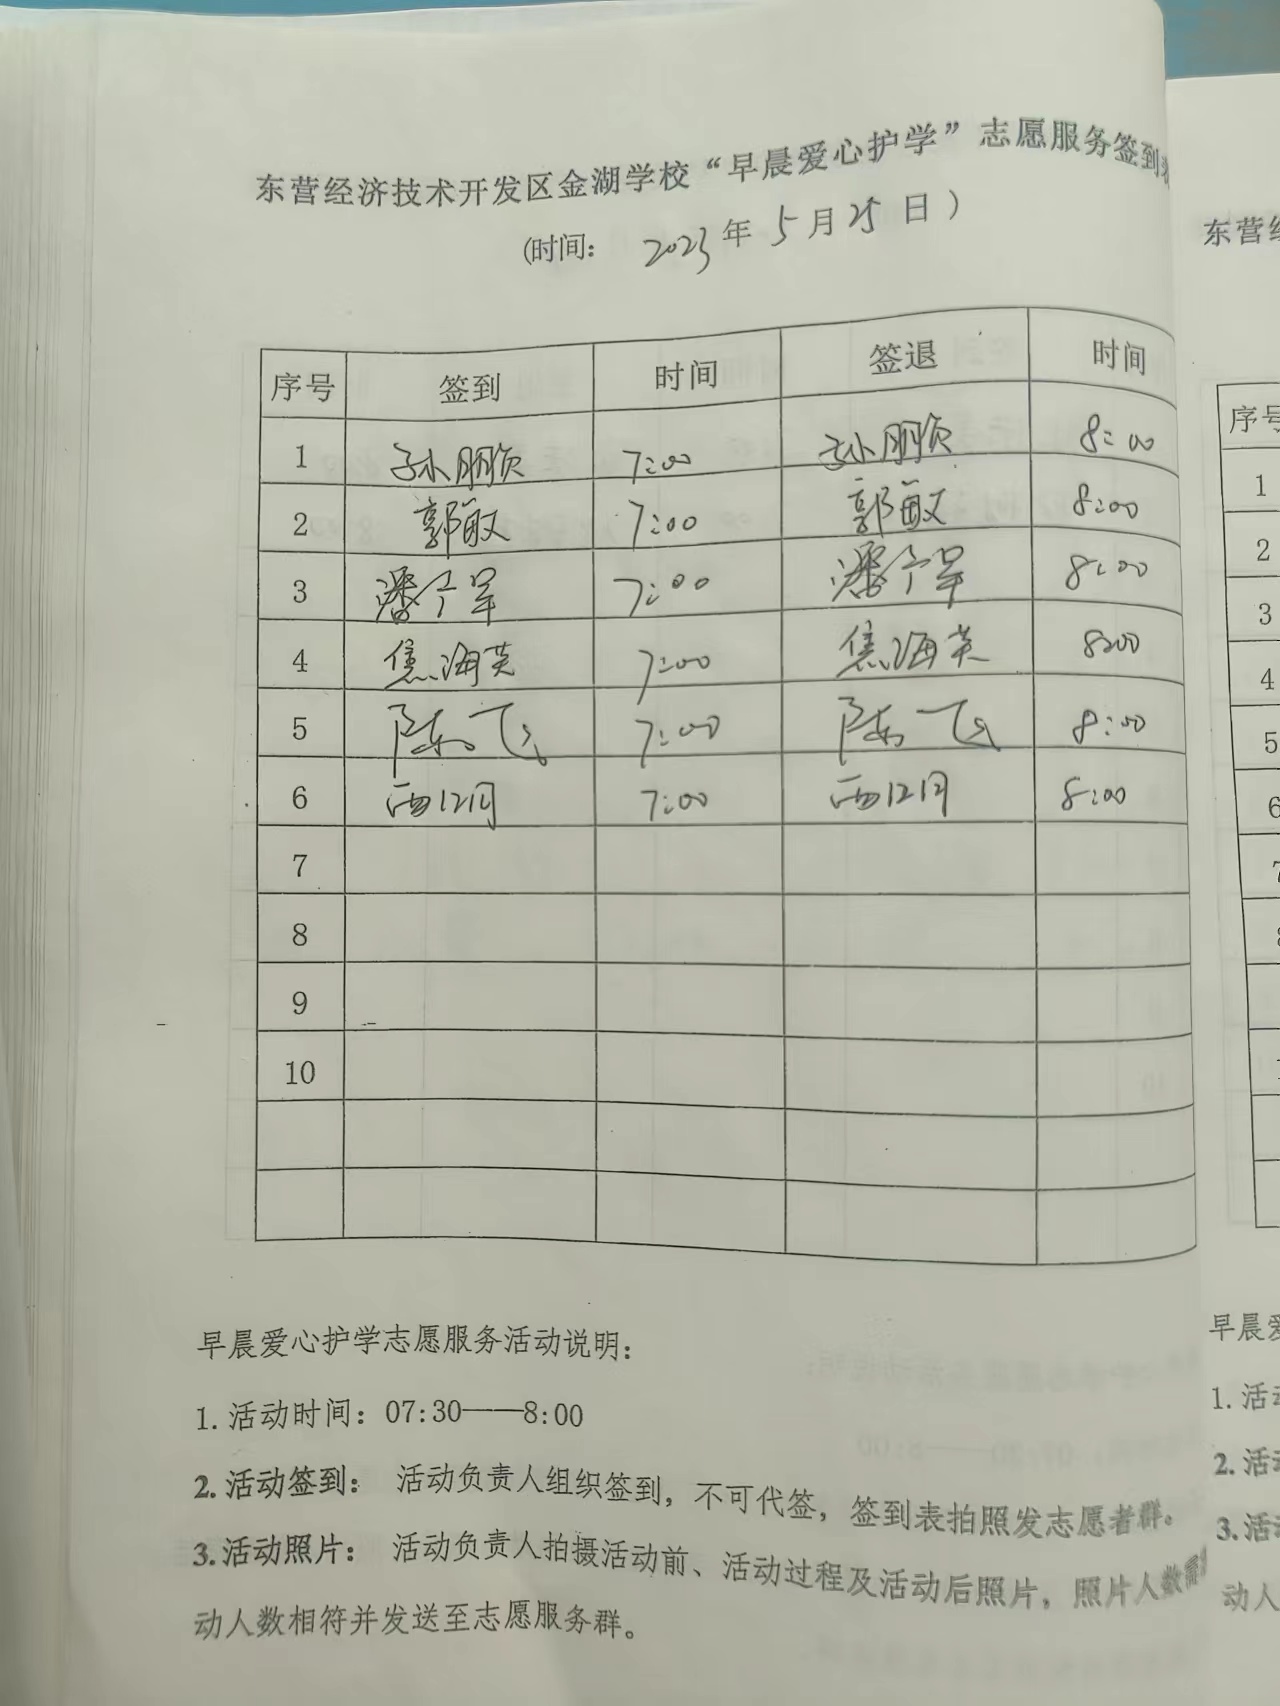 东营经济技术开发区金湖学校“早晨爱心护学”志愿服务签到表
(时间: 2023年5月25日)
序号 签到 时间 签退 时间
1 孙朋顺 7:00 孙朋顺 8:00
2 郭敏 7:00 郭敏 8:00
3 潘宁军 7:00 潘宁军 8:00
4 焦海英 7:00 焦海英 8:00
5 陈飞 7:00 陈飞 8:00
6 7:00 8:00
7
8
9
10
早晨爱心护学志愿服务活动说明:
1.活动时间: 07:30——8:00
2.活动签到: 活动负责人组织签到,不可代签,签到表拍照发志愿者群。
3.活动照片: 活动负责人拍摄活动前、活动过程及活动后照片,照片人数需
动人数相符并发送至志愿服务群。
东营经
序号
1
2
3
4
5
6
7
早晨爱
1.活动
2.活动
3.活动
动人